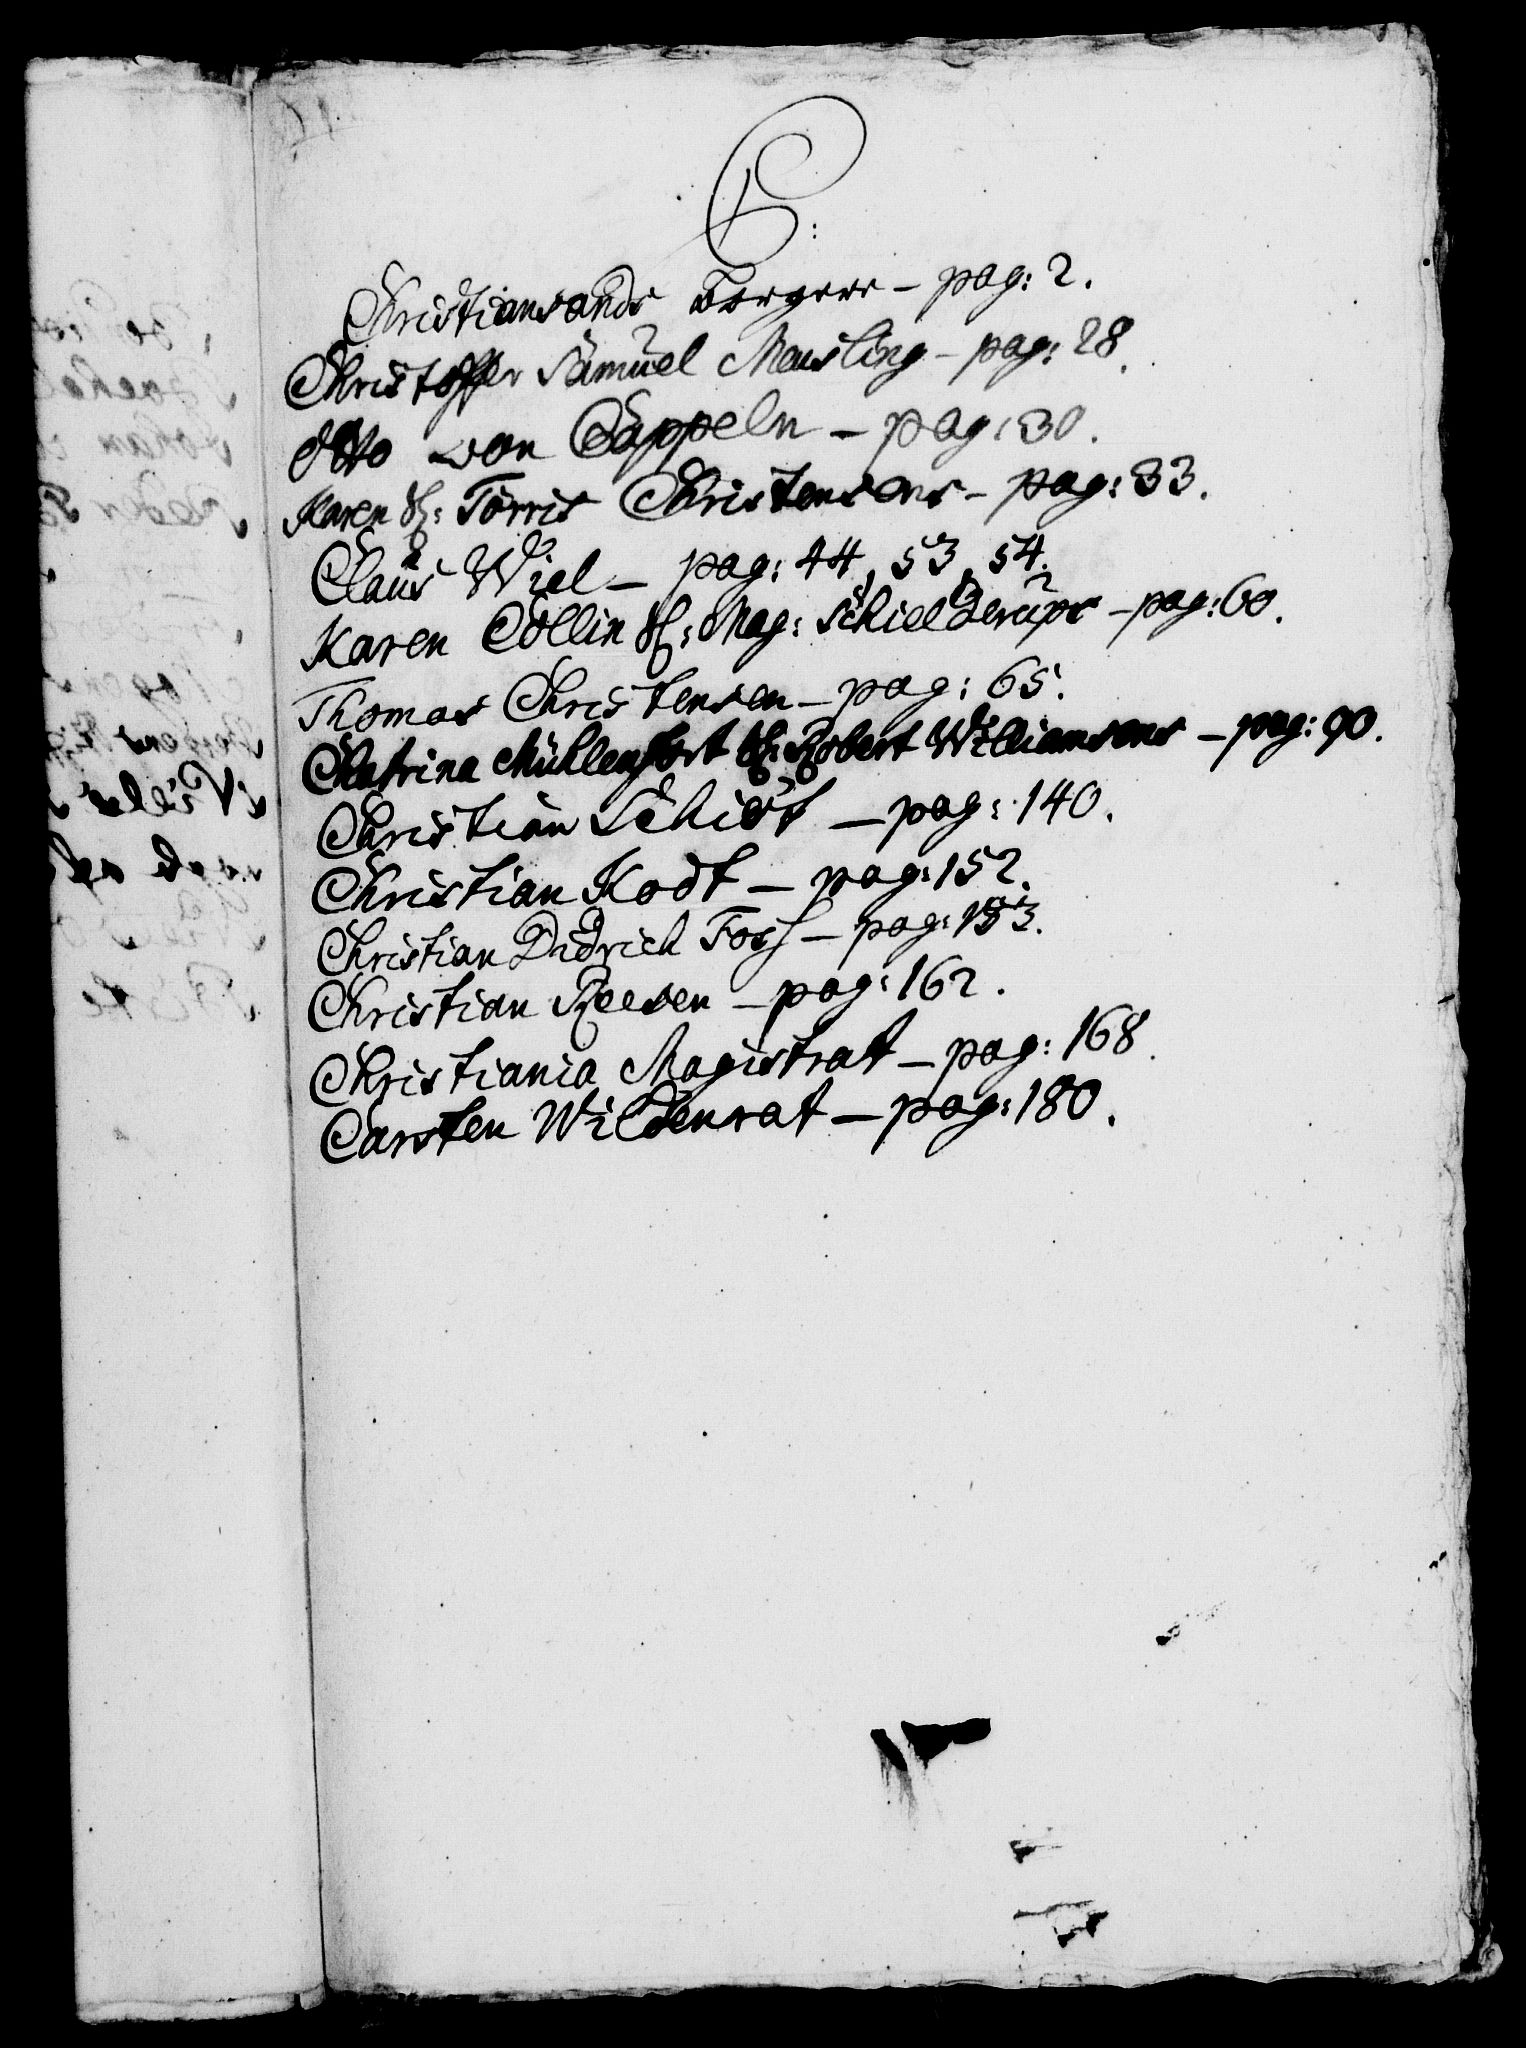 C:
Christiansands Borgere – pag: 2.
Christoffer Samüel Meusling – pag: 28.
Otto von Cappeln – pag: 30.
Karen Sl: Törris Christensens – pag: 33.
Claüs Wiel – pag: 44, 53, 54.
Karen Collin Sl: Mag: Schielderüps – pag: 60.
Thomas Christensen – pag: 65.
Chatrina Mühlenfort Sl: Robert Williamsons – pag: 90.
Christian Schiöt – pag: 140.
Christian Kodt – pag: 152.
Christian Didrich Foss – pag: 153.
Christian Reesen – pag: 162.
Christiania Magistrat – pag: 168.
Carsten Wildenrat – pag: 180.